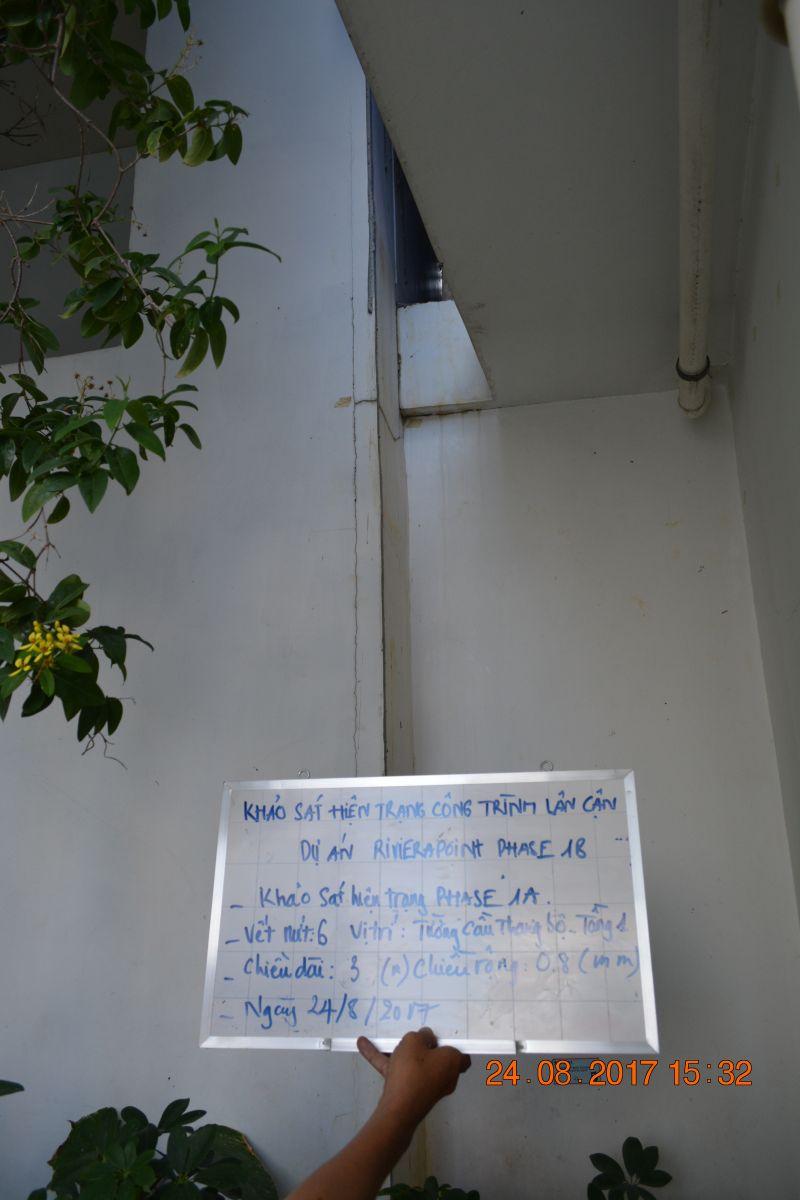 KHẢO SÁT HIỆN TRẠNG CÔNG TRÌNH LÂN CẬN
DỰ ÁN RIVIERAPOINT PHASE 1B
- Khảo sát hiện trạng PHASE 1A.
- Vết nứt: 6 Vị trí: Tường cầu thang bộ - Tầng 1
- Chiều dài: 3 (m) Chiều rộng: 0.8 (mm)
- Ngày 24/8/2017
24.08.2017 15:32